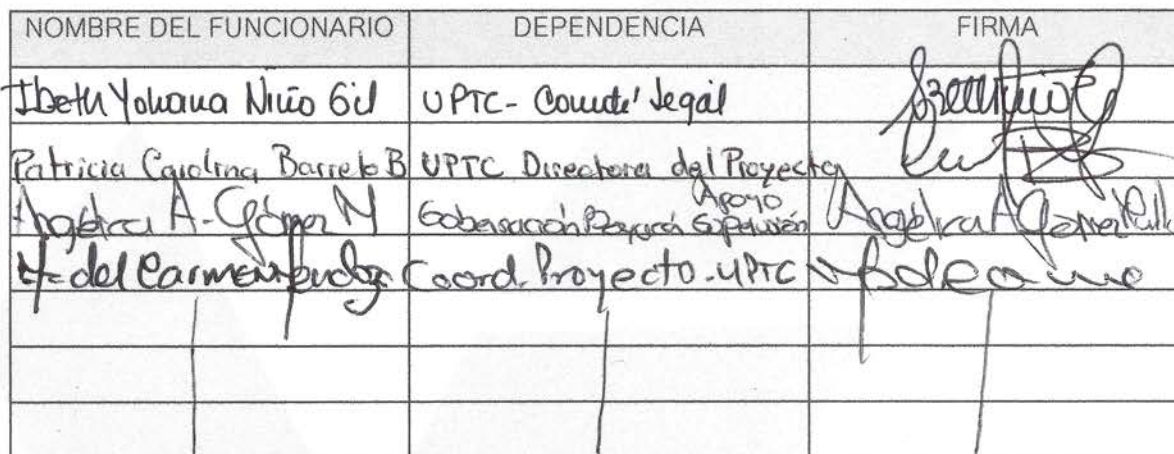 NOMBRE DEL FUNCIONARIO DEPENDENCIA FIRMA
Ibeth Yohana Niño Gil UPTC - Comité legal
Patricia Carolina Barreto B UPTC Directora del Proyecto
Angélica A. Gómez N Gobernación Boyacá Apoyo Supervisión Angélica A Gómez
del Carmen Coord. Proyecto - UPTC